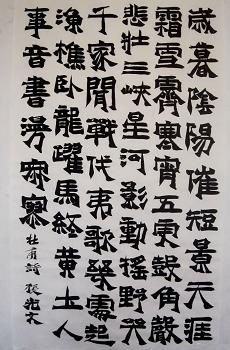 歲暮陰陽催短景天涯
霜雪霽寒宵五更鼓角聲
悲壯三峽星河影動搖野哭
千家聞戰伐夷歌處起
漁樵臥龍躍馬終黃土人
事音書漫寂寥
杜甫詩